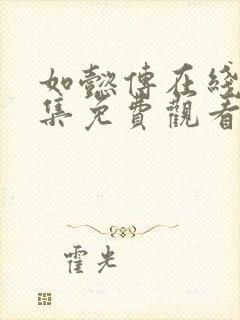 如懿傳在綫
集免費觀看
霍光